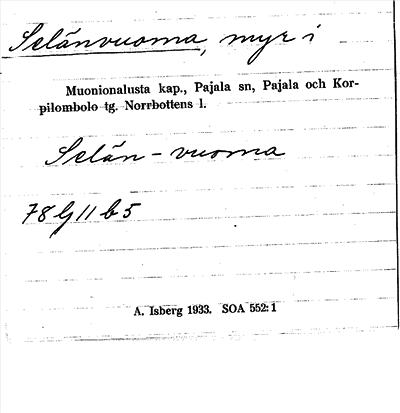 Selänvuoma, myr i
Muonionalusta kap., Pajala sn, Pajala och Kor-
pilombolo tg. Norrbottens l.
Selän-vuoma
78 G 11 b 5
A. Isberg 1933. SOA 552:1